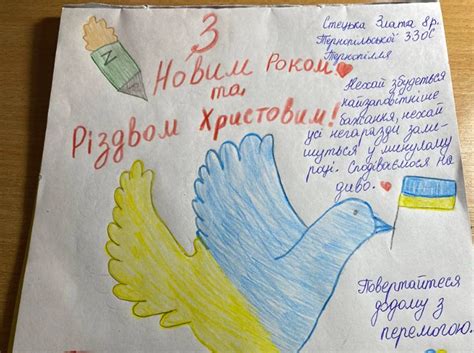 З
Новим Роком
та
Різдвом Христовим!
Стецька Злата 8 р.
Тернопільської ЗЗОС
Тернопілля
Нехай збудеться
найзаповітніше
бажання, нехай
усі негаразди зали-
шуться у минулому
році. Сподіваємося на
диво.
Повертайтеся
додому з
перемогою.
N